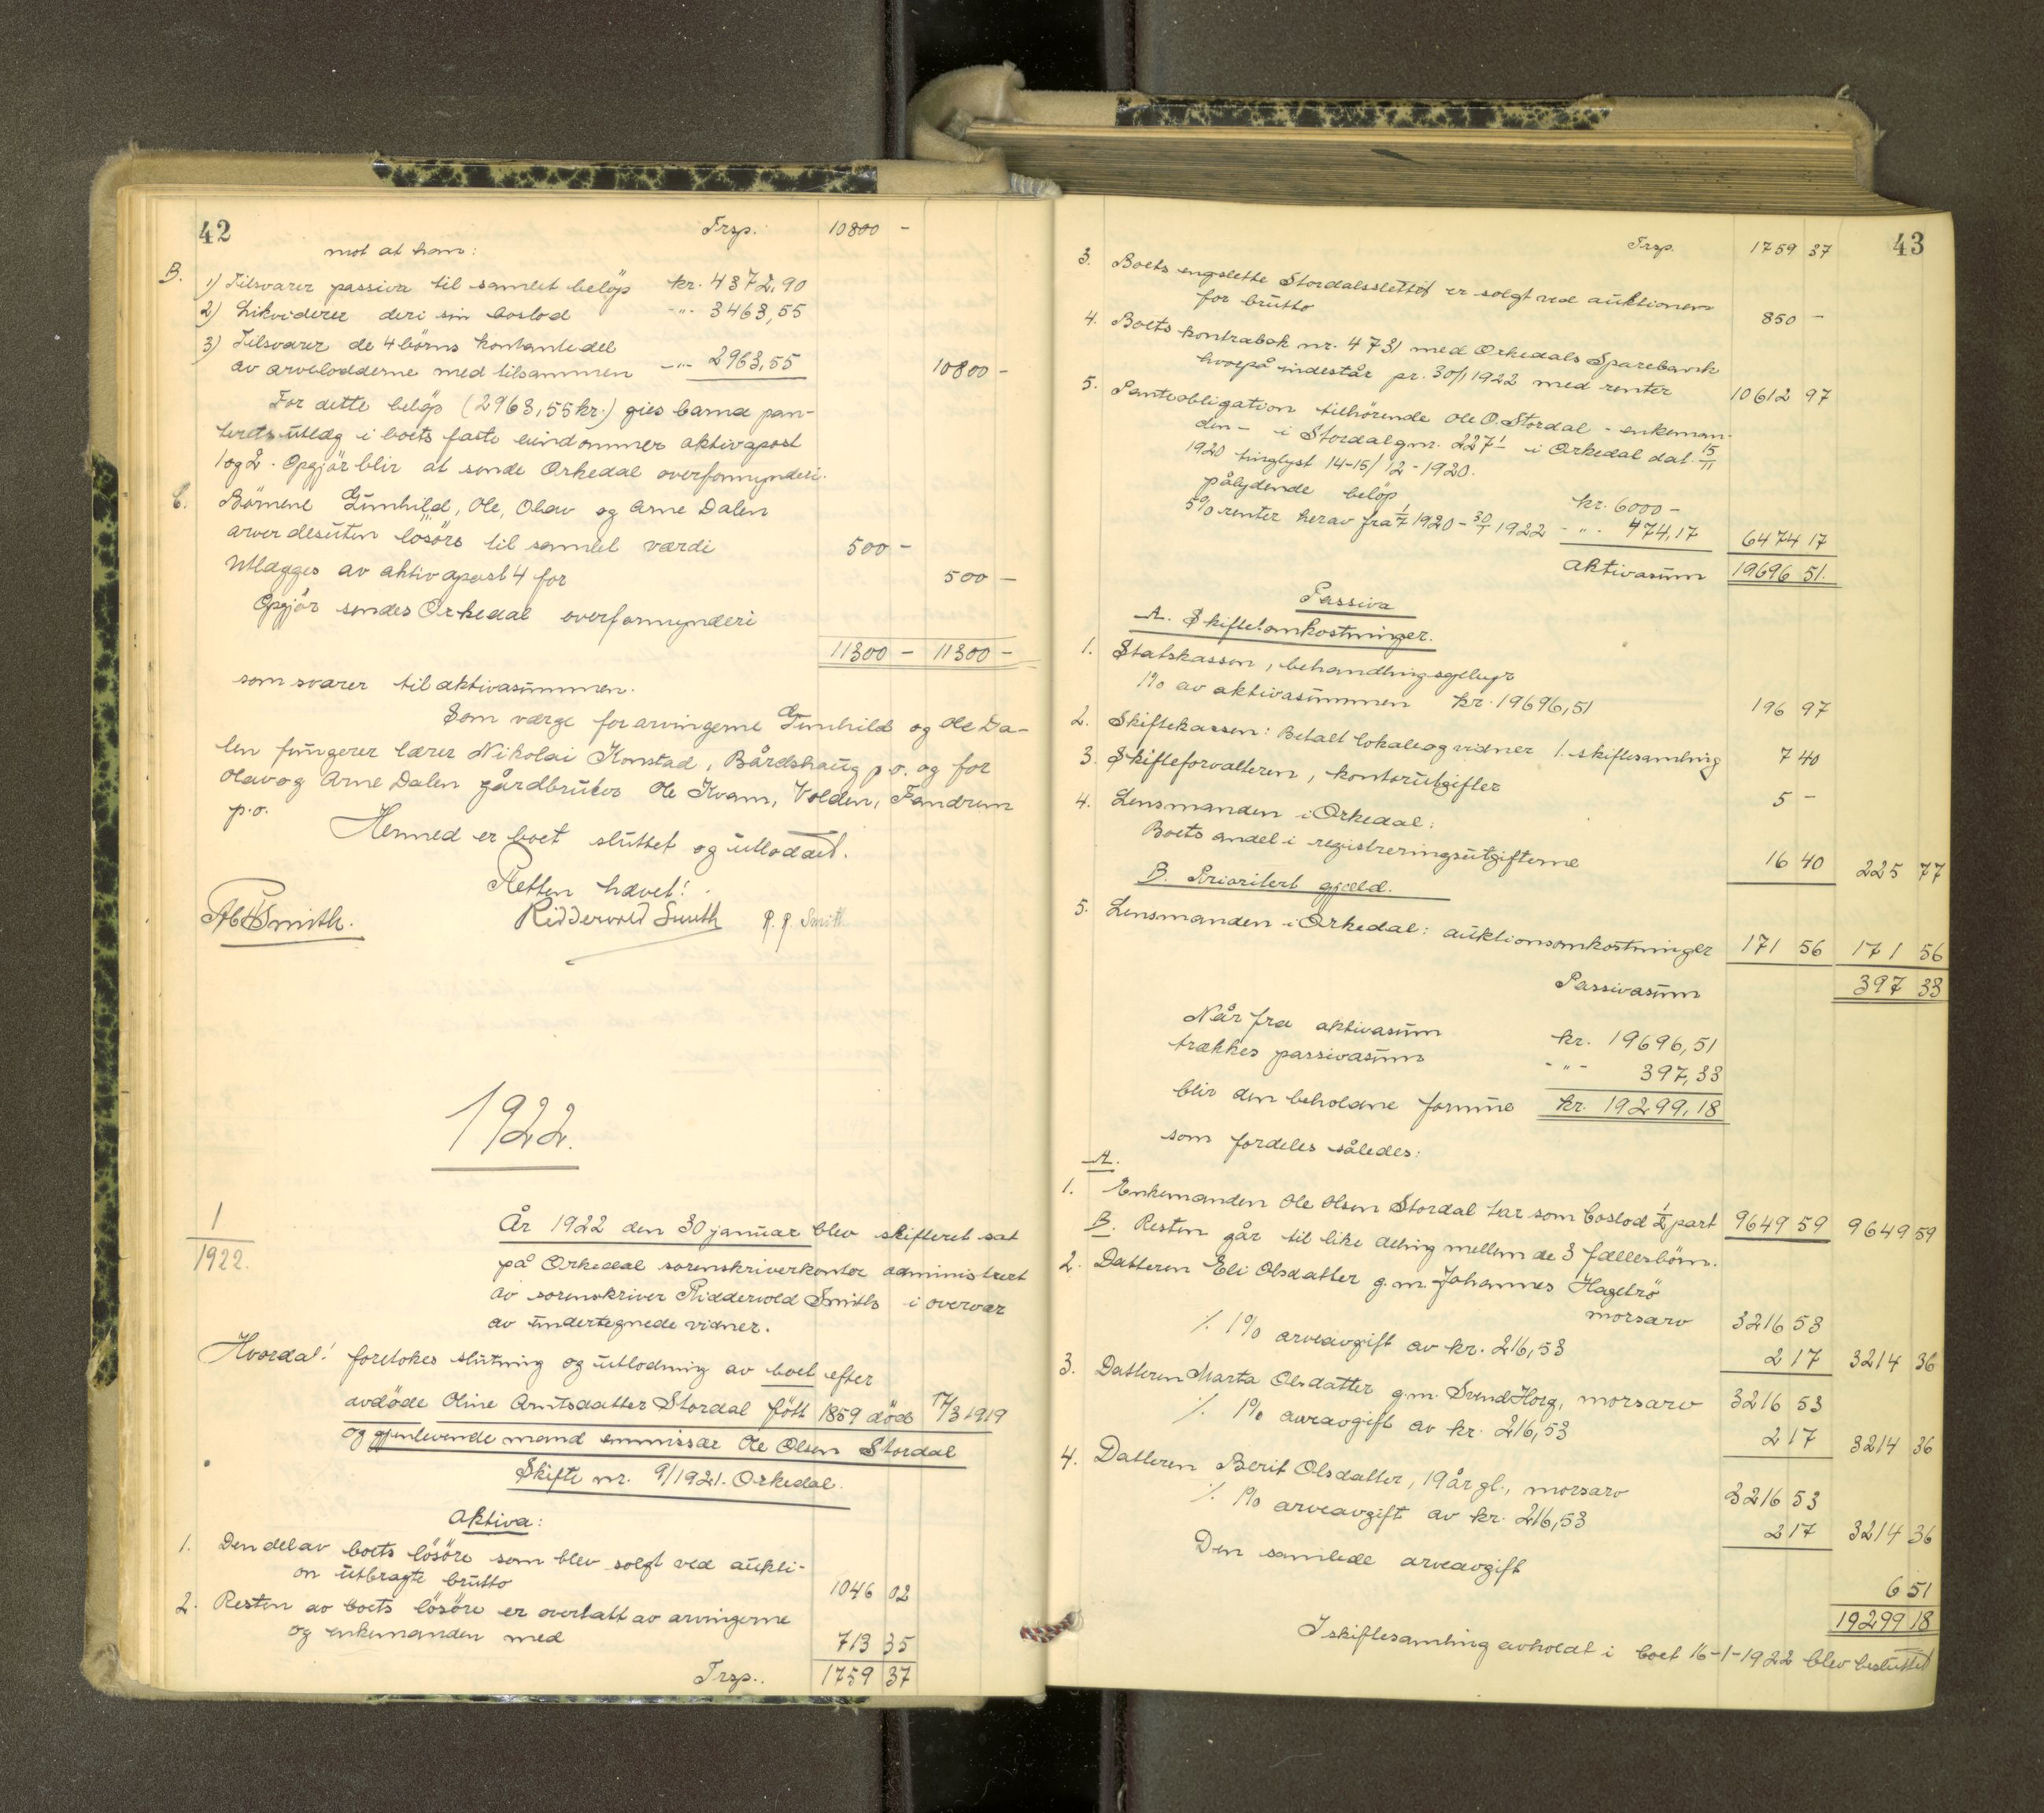 42
Trsp. 10800 -
mot at han:
B. 1) Tilsvarer passiva til samlet beløp kr. 4372,90
2) Likviderer deri sin boslod -"- 3463,55
3) Tilsvarer de 4 børns kontante del
av arvelodderne med tilsammen -"- 2963,55 10800 -
For dette beløp (2963,55 kr.) gies barna pan-
teretsutlæg i boets faste eiendommer aktivapost
1 og 2. Opgjør blir at sende Orkedal overformynderi.
C. Børnene Gunhild, Ole, Olav og Arne Dalen
arver desuten løsøre til samlet værdi 500 -
Utlægges av aktivapost 4 for 500 -
Opgjør sendes Orkedal overformynderi
11300 - 11300 -
som svarer til aktivasummen.
Som værge for arvingerne Gunhild og Ole Da-
len fungerer lærer Nikolai Konstad, Bårdshaug p.o. og for
Olav og Arne Dalen gårdbruker Ole Kvam, Volden, Fandrem
p.o.
Hermed er boet sluttet og utloddet.
Retten hævet!
Smith. Ridderwold Smith R. R. Smith
1922.
1
1922.
År 1922 den 30 januar blev skifteret sat
på Orkedal sorenskriverkontor administrert
av sorenskriver Ridderwold Smith i overvær
av undertegnede vidner.
Hvorda! foretokes slutning og utlodning av boet efter
avdøde Oline Arntsdatter Stordal født 1859 død 17/3 1919
og gjenlevende mand emmissær Ole Olsen Stordal
Skifte nr. 9/1921. Orkedal.
Aktiva:
1. Den del av boets løsøre som blev solgt ved aukti-
on utbragte brutto 1046 02
2. Resten av boets løsøre er overtatt av arvingerne
og enkemanden med 713 35
Trsp.. 1759 37
43
Trsp. 1759 37
3. Boets engslette Stordalssletten er solgt ved auktionen
for brutto 850 -
4. Boets kontrabok nr. 4731 med Orkedals Sparebank
hvorpå indestår pr. 30/1 1922 med renter 10612 97
5. Panteobligation tilhørende Ole O. Stordal - enkeman-
den - i Stordal gnr. 227/1 i Orkedal dat. 15/11
1920 tinglyst 14-15/12-1920.
pålydende beløp kr. 6000 -
5% renter herav fra 1/7 1920 - 30/1 1922 -"- 474,17 6474 17
Aktivasum 19696 51.
Passiva
A. Skifteomkostninger.
1. Statskassen, behandlingsgebyr
1% av aktivasummen kr. 19696,51 196 97
2. Skiftekassen: Betalt lokale og vidner 1. skiftesamling 7 40
3. Skifteforvalteren, kontorutgifter 5 -
4. Lensmanden i Orkedal:
Boets andel i registreringsutgifterne 16 40 225 77
B. Prioritert gjæld.
5. Lensmanden i Orkedal: auktionsomkostninger 171 56 171 56
Passivasum 397 33
Når fra aktivasum kr. 19696,51
trækkes passivasum -"- 397,33
blir den beholdne formue kr. 19299,18
som fordeles således:
A.
1. Enkemanden Ole Olsen Stordal tar som boslod 1/2 part 9649 59 9649 59
B. Resten går til like deling mellem de 3 fællesbørn.
2. Datteren Eli Olsdatter g.m. Johannes Hagebø
morsarv 3216 53
% 1% arveavgift av kr. 216,53 2 17 3214 36
3. Datteren Marta Olsdatter g.m. Svend Horg, morsarv 3216 53
% 1% arveavgift av kr. 216,53 2 17 3214 36
4. Datteren Berit Olsdatter, 19 år gl., morsarv 3216 53
% 1% arveavgift av kr. 216,53 2 17 3214 36
Den samlede arveavgift 6 51
19299 18
I skiftesamling avholdt i boet 16-1-1922 blev besluttet